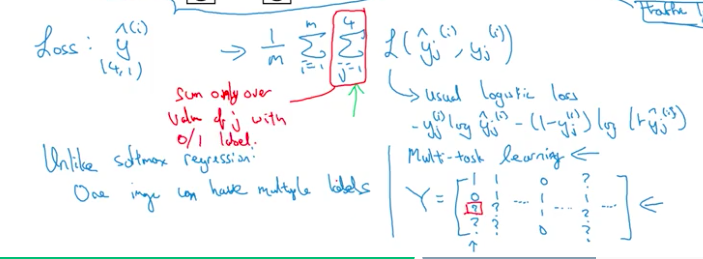 Loss: ŷ^(i) → 1/m Σ_{i=1}^{m} Σ_{j=1}^{4} L(ŷ_j^(i), y_j^(i))
(4,1)
Sum only over
value of j with
0/1 label.
usual logistic loss
- y_j^(i) log ŷ_j^(i) - (1-y_j^(i)) log (1-ŷ_j^(i))
Unlike softmax regression:
One image can have multiple labels
Multi-task learning ←
Y = [ 1 1 0 ?
0 1 .... 1 1 ....
? ? 1 ?
? ? 0 ? ] ←